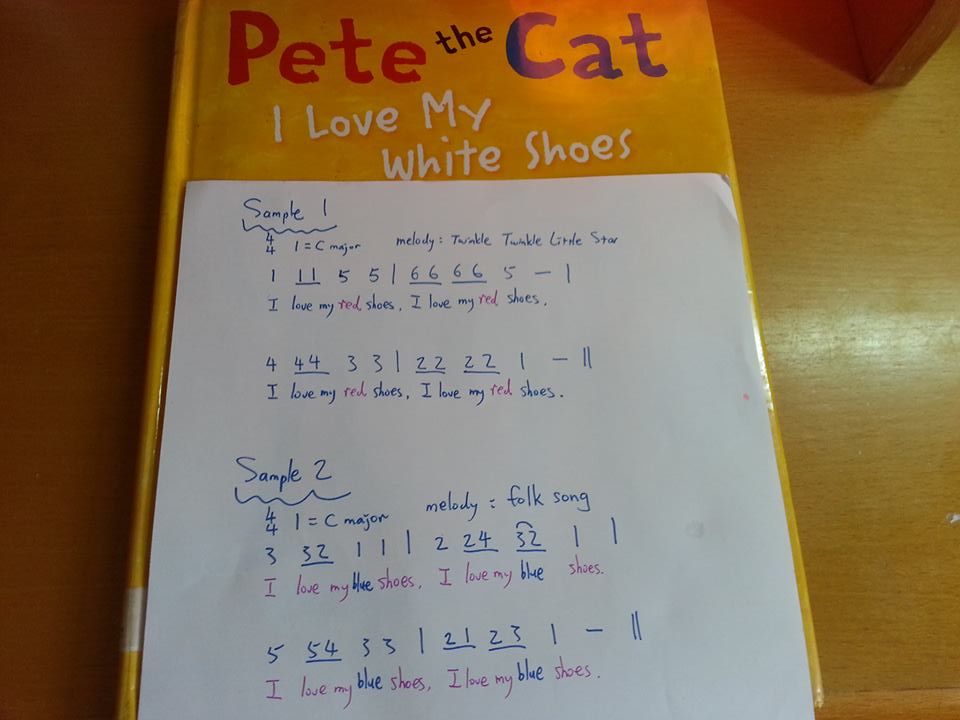 Pete the Cat
I Love My
White Shoes
Sample 1
4/4 1 = C major melody : Twinkle Twinkle Little Star
1 11 5 5 | 66 66 5 — |
I love my red shoes, I love my red shoes.
4 44 3 3 | 22 22 1 — ||
I love my red shoes, I love my red shoes.
Sample 2
4/4 1 = C major melody : folk song
3 32 1 1 | 2 24 32 1 |
I love my blue shoes, I love my blue shoes.
5 54 3 3 | 21 23 1 — ||
I love my blue shoes, I love my blue shoes.